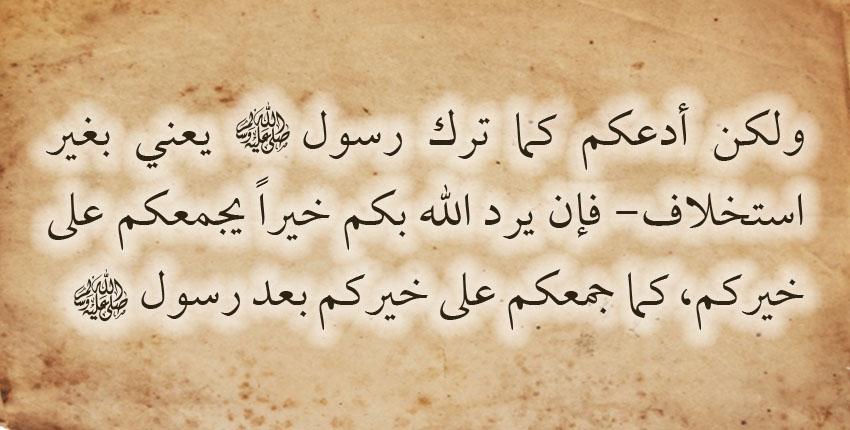 ولكن أدعكم كما ترك رسول ﷺ يعني بغير
استخلاف– فإن يرد الله بكم خيراً يجمعكم على
خيركم، كما جمعكم على خيركم بعد رسول ﷺ